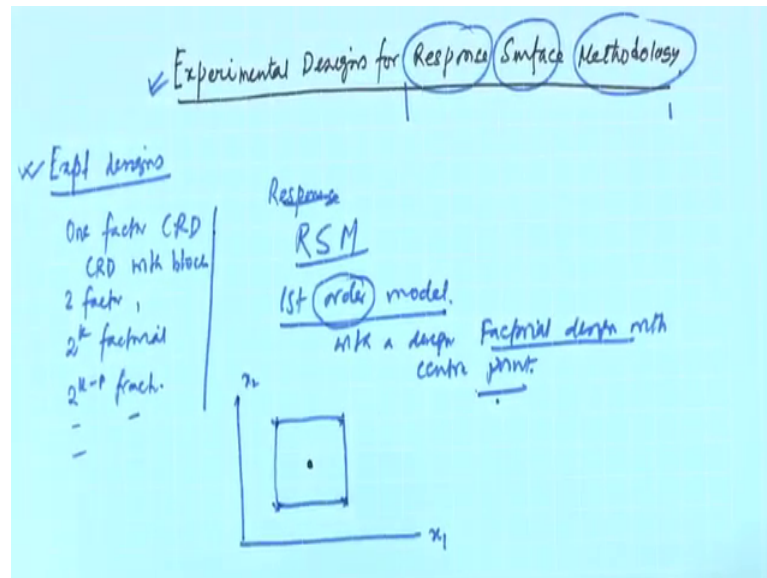 Experimental Designs for Response Surface Methodology
Expt designs
One factor CRD
CRD with block
2 factor,
2^k factorial
2^k-p fract.
Response
RSM
1st order model.
with a design Factorial design with
centre point.
x2
x1